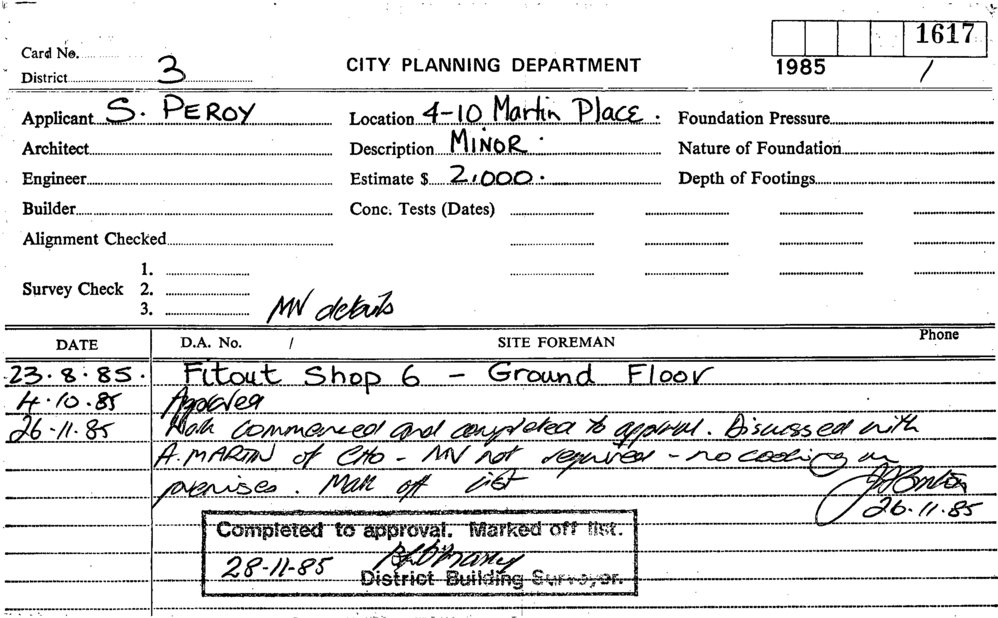 1617
Card No.
1985 /
District 3
CITY PLANNING DEPARTMENT
Applicant S. PEROY
Location 4-10 Martin Place.
Foundation Pressure
Architect
Description MINOR.
Nature of Foundation
Engineer
Estimate $ 2,000.
Depth of Footings
Builder
Conc. Tests (Dates)
Alignment Checked
Survey Check
1.
2.
3.
MV details
DATE
D.A. No. /
SITE FOREMAN
Phone
23.8.85. Fitout Shop 6 - Ground Floor
4.10.85 Approved
26.11.85 Work commenced and completed to approval. Discussed with
A. MARTIN of CHO - MV not required - no cooking on
premises. Mark off list
26.11.85
Completed to approval. Marked off list.
28-11-85
District Building Surveyor.